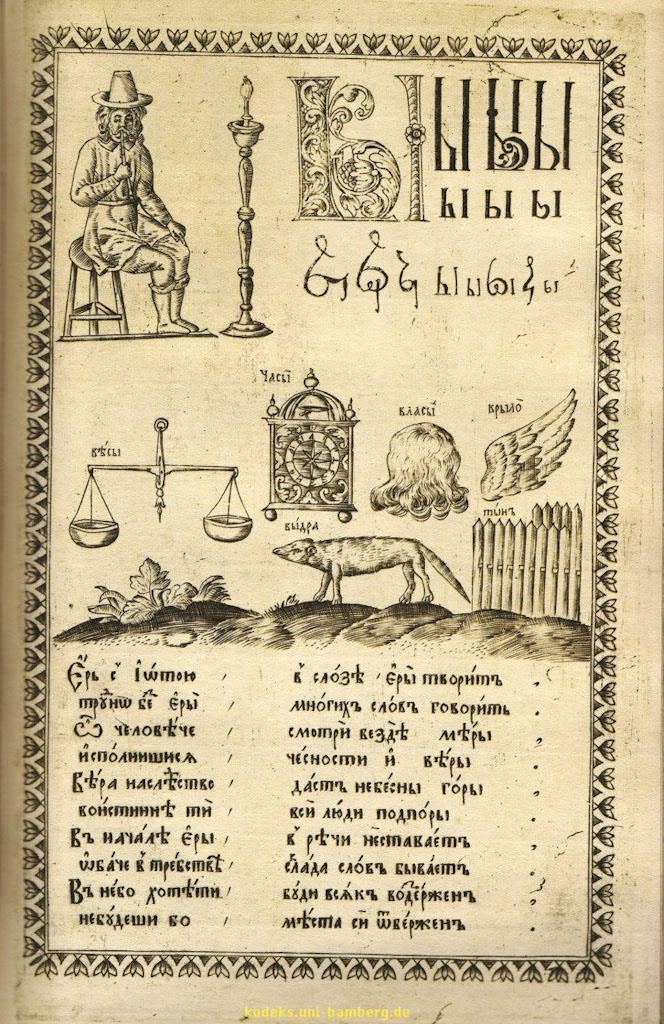 Ы Ы Ы Ы
ы ы ы
ы ы ы ы
часы̀
власы̀
крыло̀
вѣсы
выдра
тынъ
Е́рь с̾ І҆ѡтою , в̾ сло́зѣ є҆ры̀ твори́тъ .
є҆ры̀ , мно́гихъ сло́въ говори́тъ .
Ѽ человѣ́че смотрѝ вездѣ̀ мѣ́ры ,
и҆спо́лнишися че́сности и҆ вѣ́ры .
Вѣ́ра наслѣ́ство , да́стъ небе́сны го́ры
вои́стиннѣ тѝ , всѝ лю́ди подпо́ры .
Въ нача́лѣ є҆ры̀ , в̾ рѣ́чи неставае́тъ
ѻ҆ба́че в̾ , скла́да сло́въ быва́етъ ,
Въ не́бо хотѣ́ти , бу́ди вся́къ воз̾де́рженъ ,
небу́деши бо , мѣ́ста сѝ ѿве́рженъ .
kodeks.uni-bamberg.de